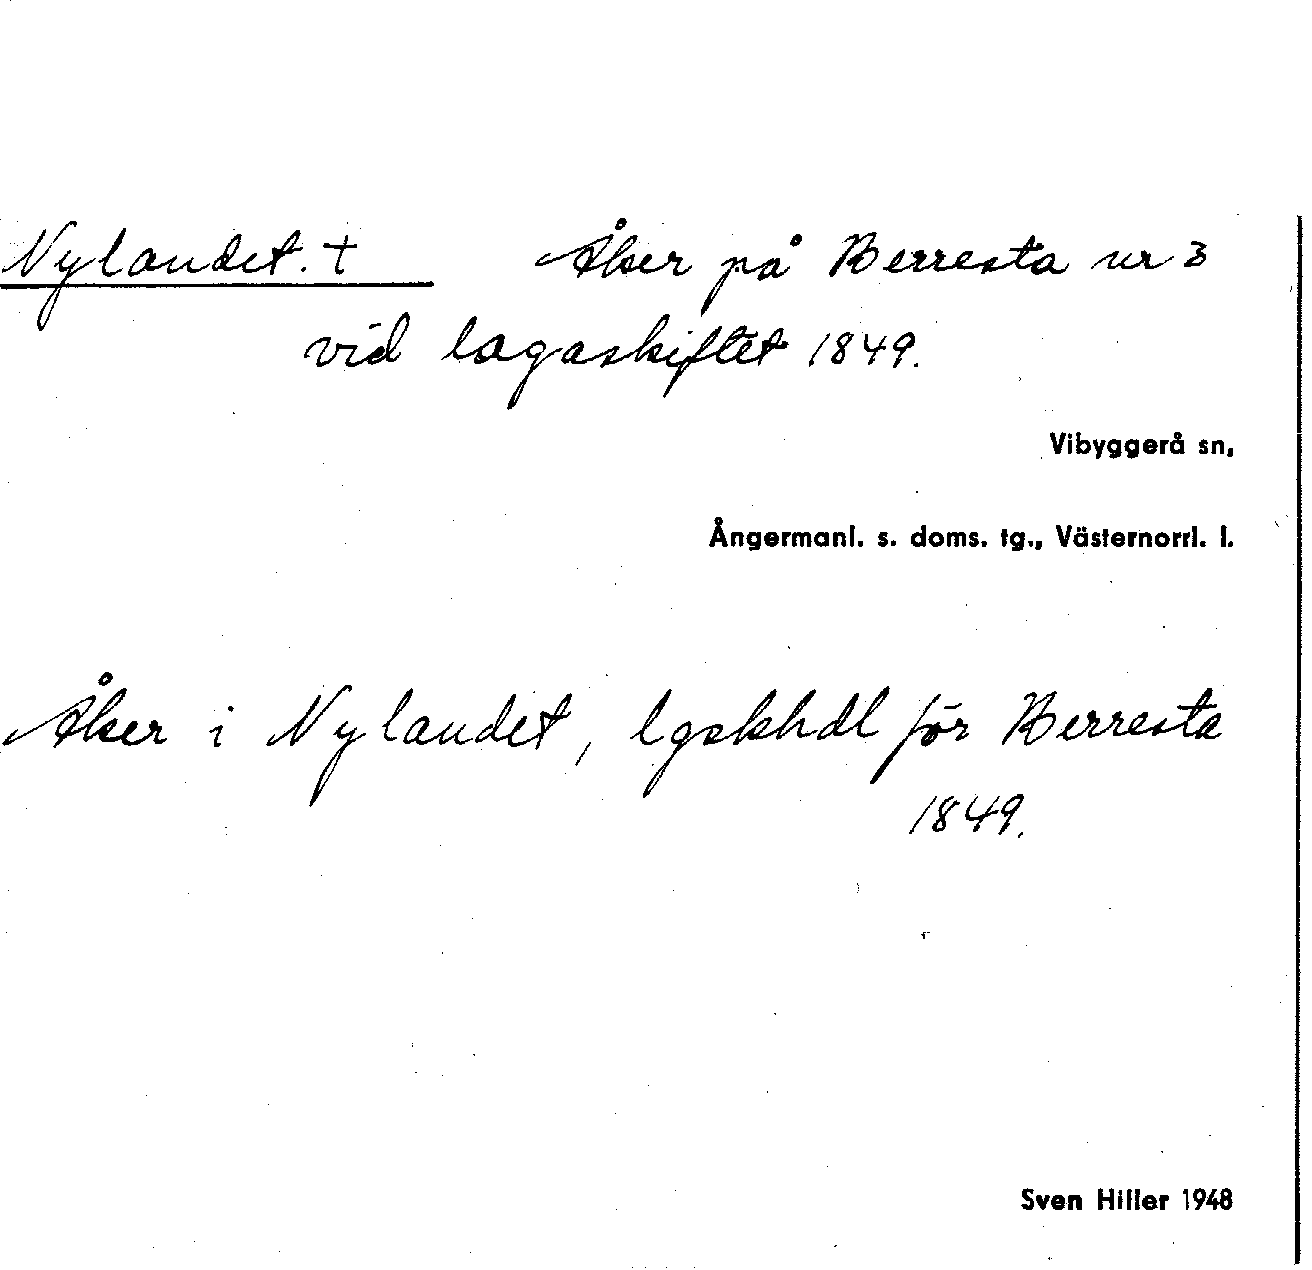 Nylandet. † Åker på Berresta nr 3
vid lagaskiftet 1849.
Vibyggerå sn,
Ångermanl. s. doms. tg., Västernorrl. l.
Åker i Nylandet, lgskhdl för Berresta
1849.
Sven Hiller 1948